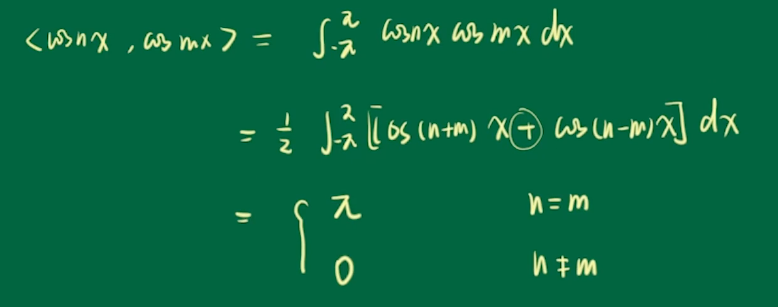 <cos nx , cos mx> = ∫_{-π}^{π} cos nx cos mx dx
= 1/2 ∫_{-π}^{π} [cos (n+m) x ⊕ cos (n-m)x] dx
= { π n = m
0 n ≠ m